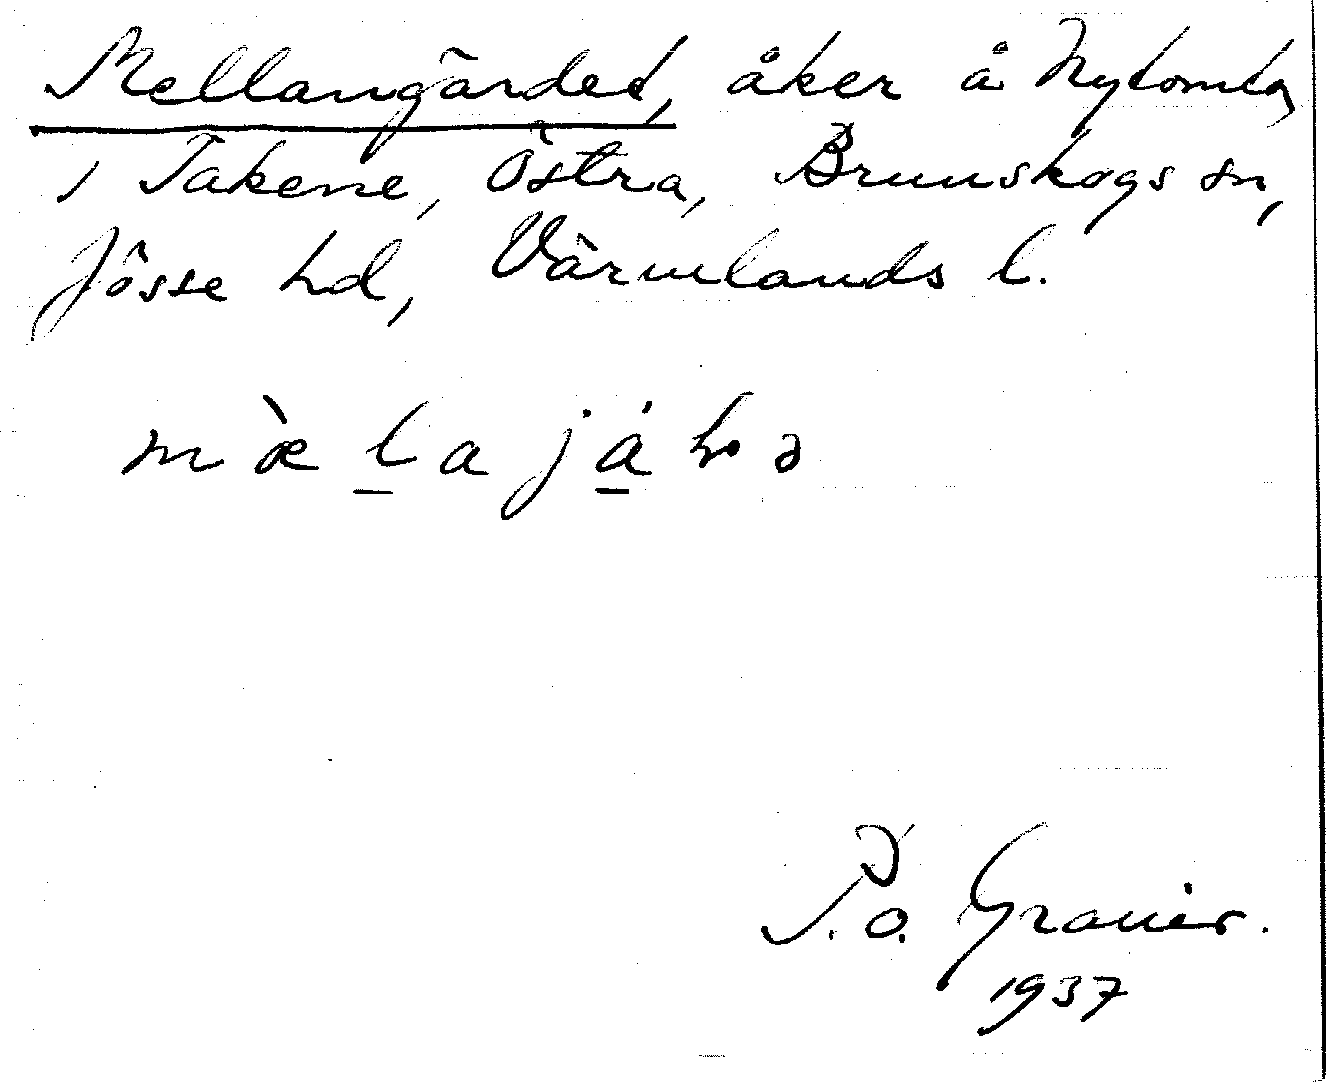 Mellangärdet, åker å Nytomta
i Takene, Östra, Brunskogs sn,
Jösse hd, Värmlands l.
P. o. Granér.
1937